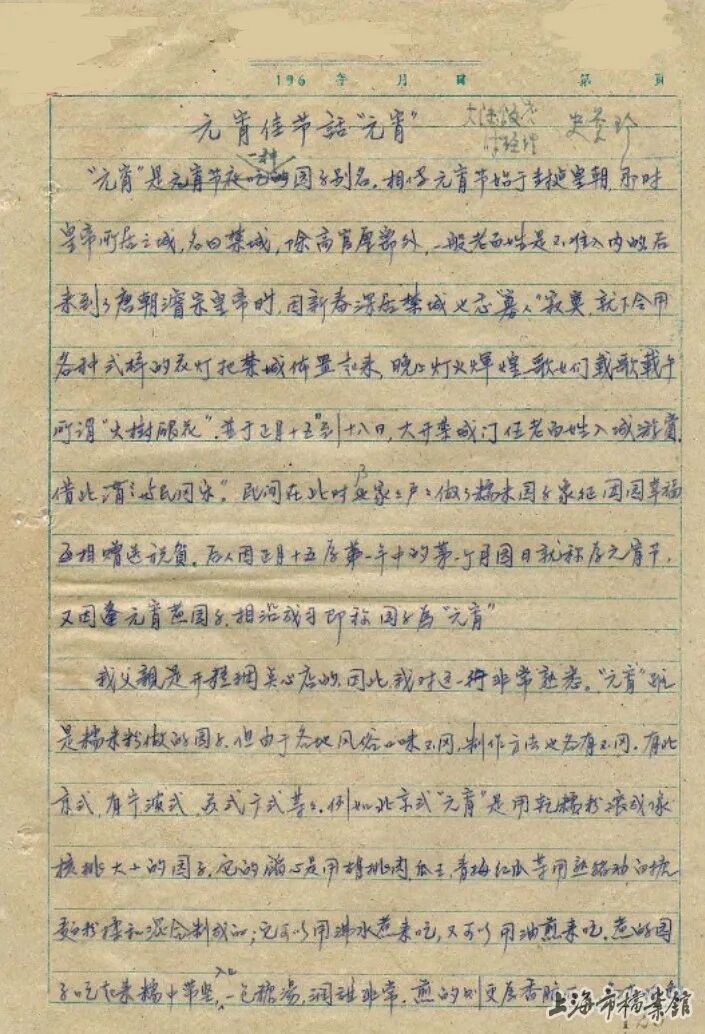 196 年 月 日 第 页
元宵佳节话“元宵” 大陆饭店 经理 史
一种
“元宵”是元宵节夜吃的团子别名。相传元宵节始于封建皇朝，那时
皇帝所居之城，名曰禁城，除高官厚爵外，一般老百姓是不准入内的后
来到了唐朝睿宗皇帝时，因新春深居禁城也忐“寡人”寂寞，就下令用
各种式样的花灯把禁城佈置起来，晚上灯火辉煌歌女们载歌载午
所谓“火樹银花”。並于正月十五到十八日，大开禁城门任老百姓入城游賞，
借此谓之“与民同乐”。民间在此时家々户々做了糯米团子象征团圆幸福
互相赠送祝贺。后人因正月十五居第一年中的第一个月圆日就称为元宵节，
又因逢元宵煮团子，相沿成习即称团子為“元宵”
我父親是开糕糰点心店的，因此，我对这一行非常熟悉。“元宵”虽
是糯米粉做的团子，但由于各地风俗口味不同，制作方法也各有不同。有北
京式，有宁波式，苏式广式等々。例如北京式“元宵”是用乾糯粉滚成像
核桃大小的团子。它的馅心是用胡桃肉，瓜玉，青梅红瓜等用熟猪油白糖
麵粉揉和混合制成的；它可以用沸水煮来吃，又可以用油煎来吃。煮的团
子吃起来糯中带坚，入口一包糖湯，润甜非常。煎的则更为香脆
上海市档案馆